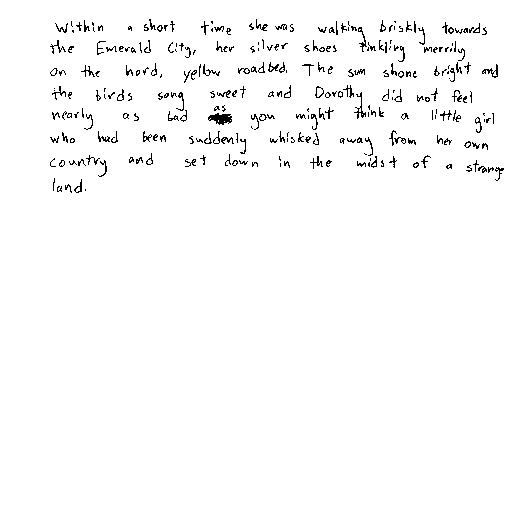 Within a short time she was walking briskly towards
the Emerald City, her silver shoes tinkling merrily
on the hard, yellow roadbed. The sun shone bright and
the birds song sweet and Dorothy did not feel
nearly as bad as you might think a little girl
who had been suddenly whisked away from her own
country and set down in the midst of a strange
land.